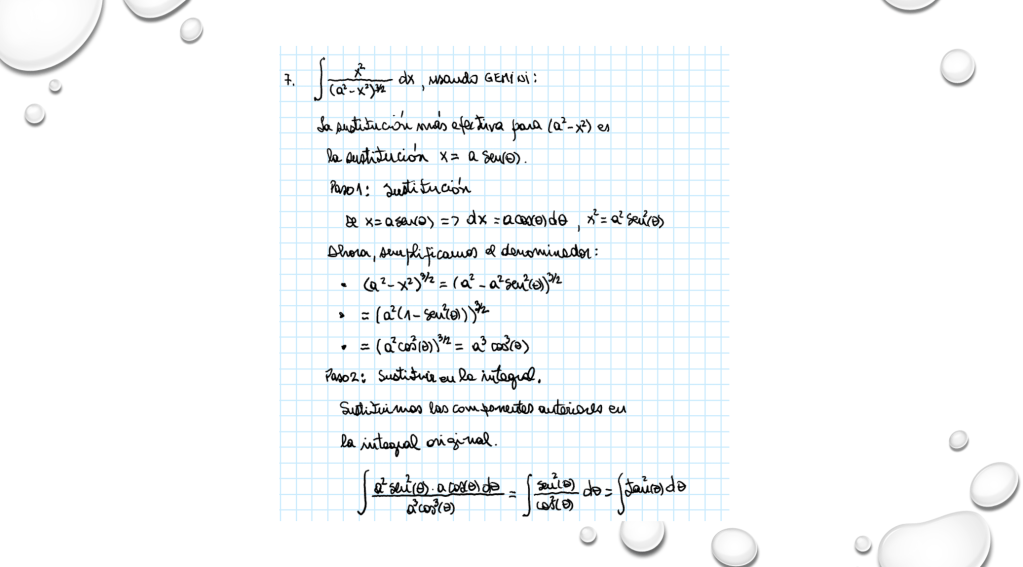 7. ∫ x²/(a²-x²)^3/2 dx, usando GEMINI:
La sustitución más efectiva para (a²-x²) es
la sustitución x = a sen(θ).
Paso 1: Sustitución
x = a sen(θ) => dx = a cos(θ) dθ, x² = a² sen²(θ)
Ahora, simplificamos el denominador:
• (a²-x²)^3/2 = (a² - a² sen²(θ))^3/2
• = (a²(1-sen²(θ)))^3/2
• = (a² cos²(θ))^3/2 = a³ cos³(θ)
Paso 2: Sustituir en la integral.
Sustituimos los componentes anteriores en
la integral original.
∫ a² sen²(θ) · a cos(θ) dθ / a³ cos³(θ) = ∫ sen²(θ)/cos²(θ) dθ = ∫ tan²(θ) dθ